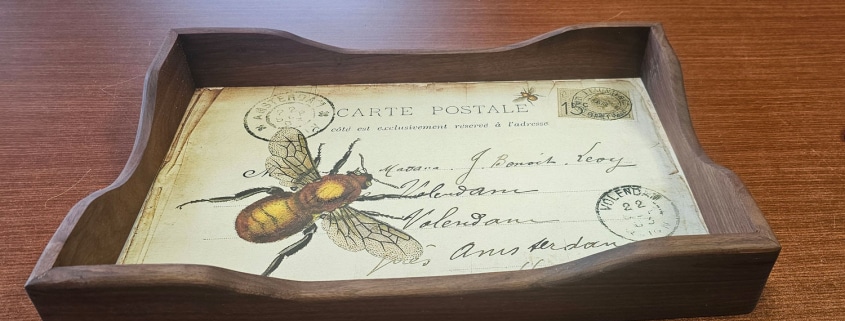 AMSTERDAM
CARTE POSTALE
15 c
côté est exclusivement réservé à l'adresse
Madame J. Benoit. Levy
Volendam
Volendam
VOLENDAM
22
près Amsterdam